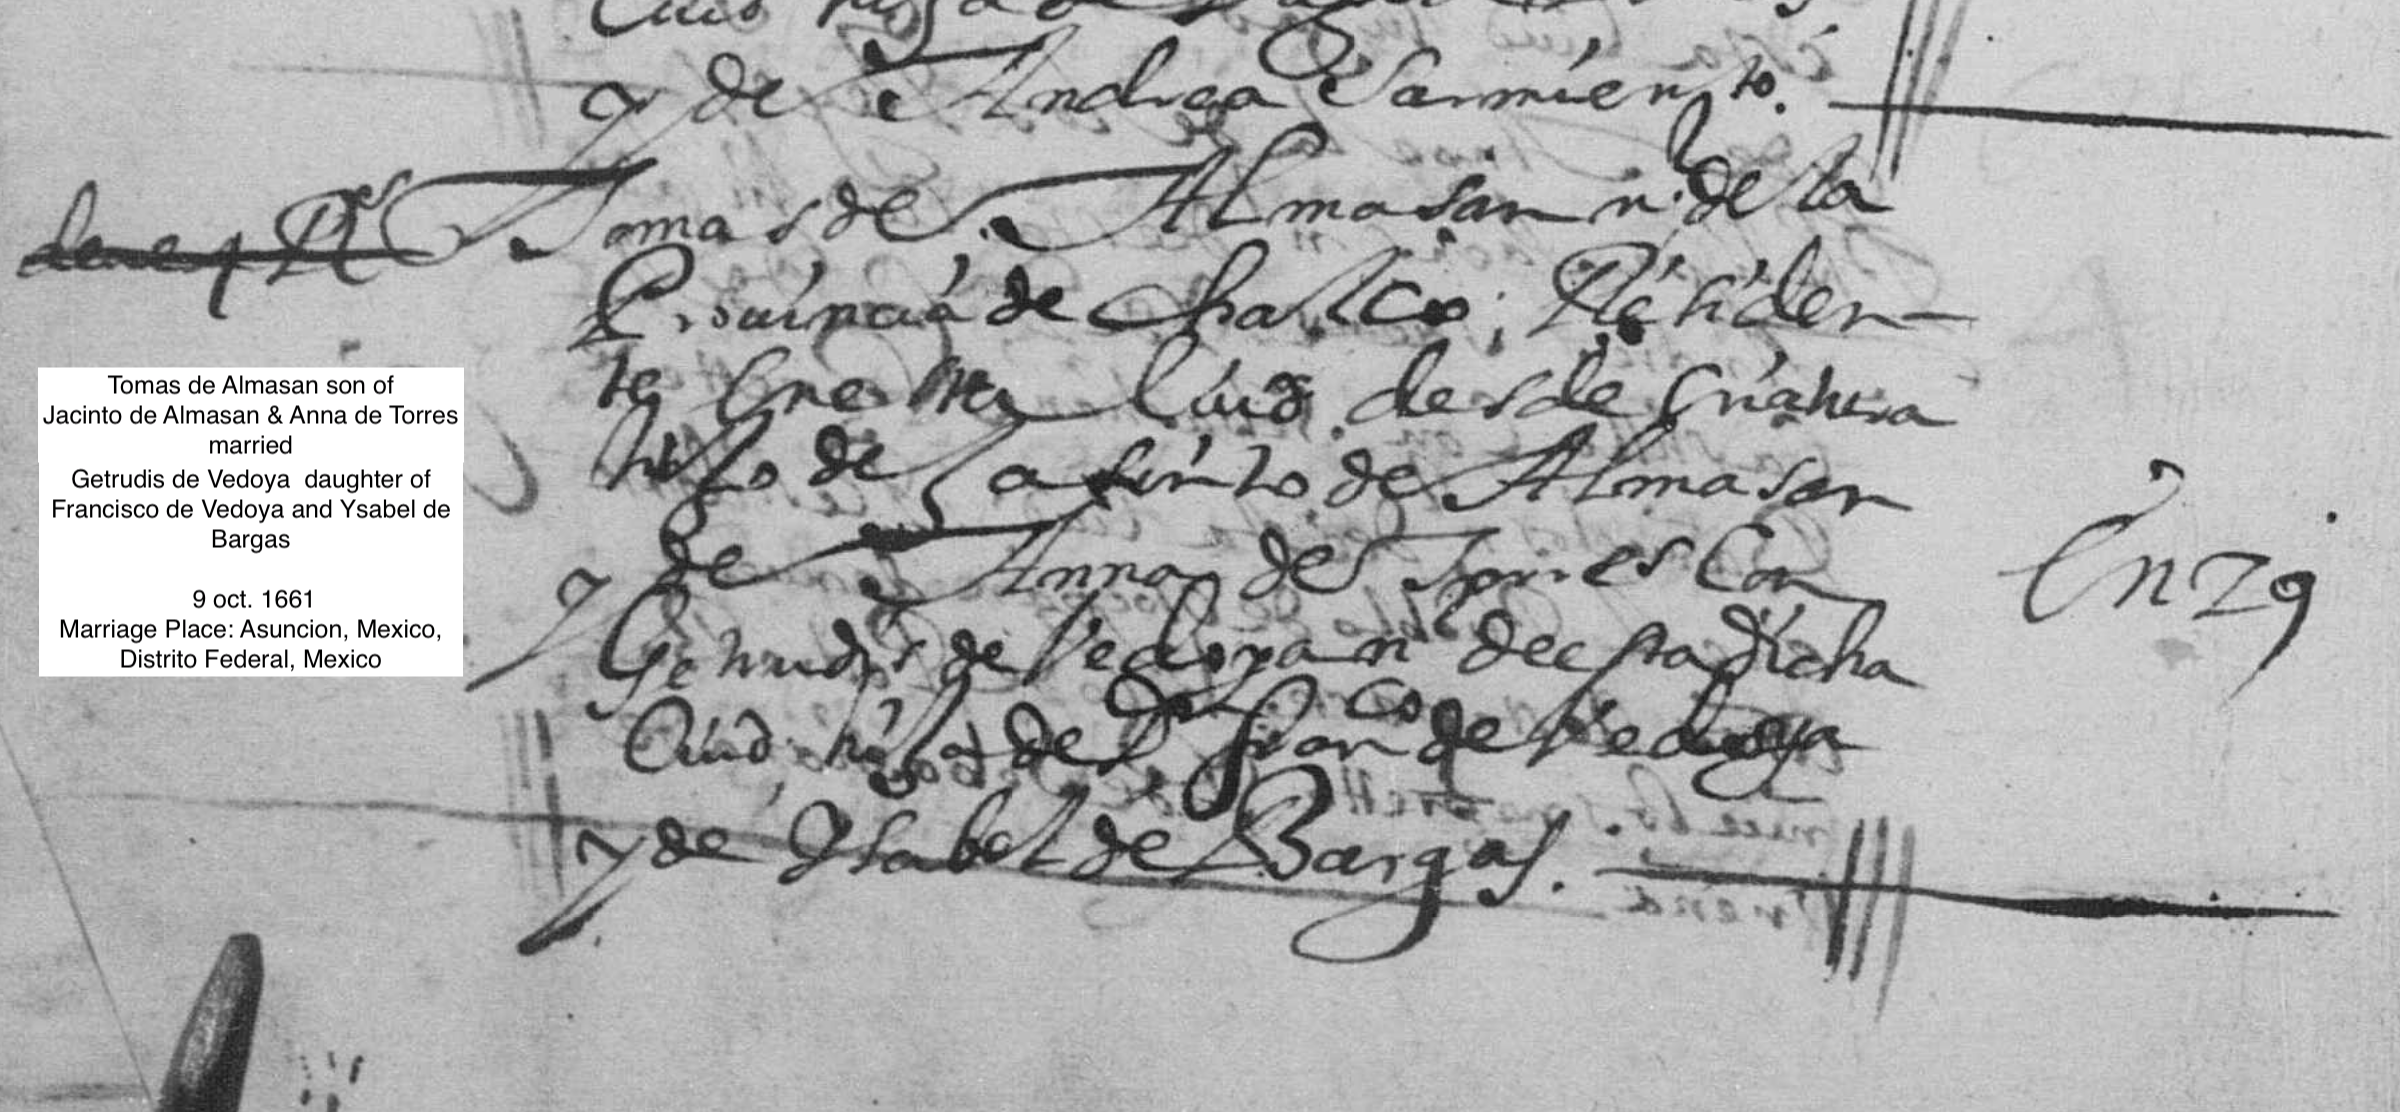 y de Andrea Sarmien to.
Tomas de Almasan n. de la
Prouincia de Chalco, Reciden-
te en esta Ciud. desde criatura
hijo de Jasinto de Almasan
y de Anna de Torres Con
En 29
Getrudis de Vedoya n de esta dicha
Ciud hija de D Franco de Vedoya
y de Ysabel de Bargas.
Tomas de Almasan son of
Jacinto de Almasan & Anna de Torres
married
Getrudis de Vedoya daughter of
Francisco de Vedoya and Ysabel de
Bargas
9 oct. 1661
Marriage Place: Asuncion, Mexico,
Distrito Federal, Mexico